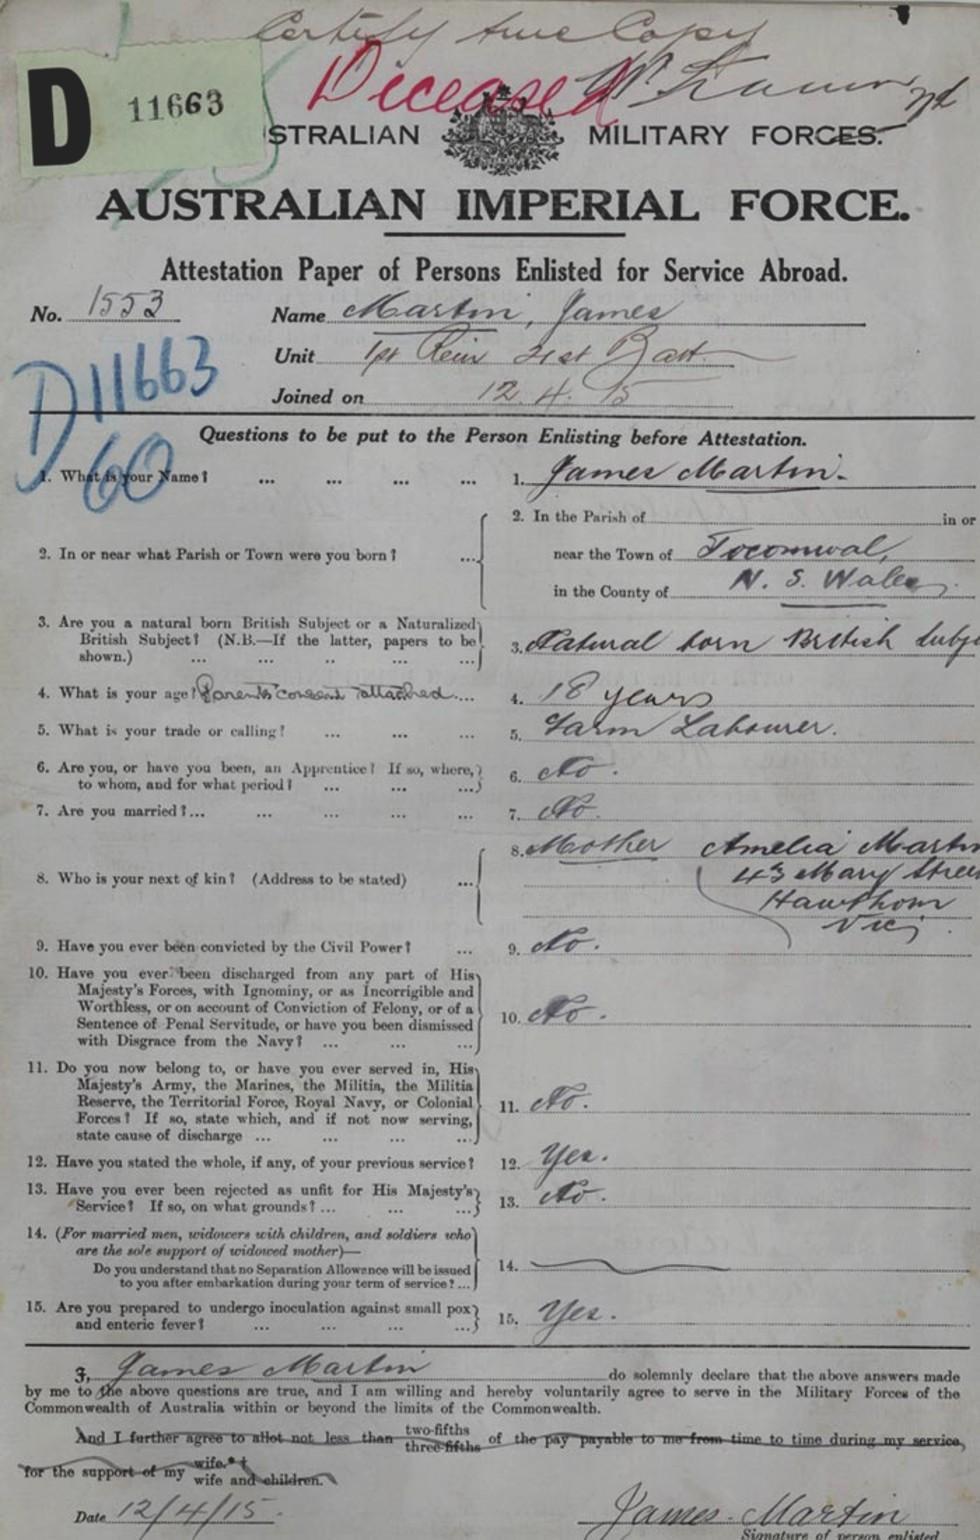 Certify true Copy
Deceased
D 11663
STRALIAN MILITARY FORCES.
AUSTRALIAN IMPERIAL FORCE.
Attestation Paper of Persons Enlisted for Service Abroad.
No. 1553 Name Martin, James
Unit 1st Rein 21st Batt.
D11663
Joined on 12. 4. 15
60
Questions to be put to the Person Enlisting before Attestation.
1. What is your Name? ... ... ... ... 1. James Martin.
2. In or near what Parish or Town were you born? ... 2. In the Parish of in or
near the Town of Tocomwal,
in the County of N. S. Wales
3. Are you a natural born British Subject or a Naturalized 3. Natural born British Subje
British Subject? (N.B.—If the latter, papers to be
shown.) ... ... .. ... ...
4. What is your age? Parents consent attached ... 4. 18 years
5. What is your trade or calling? ... ... ... 5. Farm Labourer.
6. Are you, or have you been, an Apprentice? If so, where, 6. No.
to whom, and for what period? ... ... ...
7. Are you married? ... ... ... ... 7. No.
8. Who is your next of kin? (Address to be stated) ... 8. Mother Amelia Martin
43 Mary Stree
Hawthorn
Vic;
9. Have you ever been convicted by the Civil Power? ... 9. No.
10. Have you ever been discharged from any part of His
Majesty's Forces, with Ignominy, or as Incorrigible and
Worthless, or on account of Conviction of Felony, or of a 10. No.
Sentence of Penal Servitude, or have you been dismissed
with Disgrace from the Navy? ... ... ...
11. Do you now belong to, or have you ever served in, His
Majesty's Army, the Marines, the Militia, the Militia
Reserve, the Territorial Force, Royal Navy, or Colonial 11. No.
Forces? If so, state which, and if not now serving,
state cause of discharge ... ... ... ...
12. Have you stated the whole, if any, of your previous service? 12. Yes.
13. Have you ever been rejected as unfit for His Majesty's 13. No.
Service? If so, on what grounds? ... ... ...
14. (For married men, widowers with children, and soldiers who
are the sole support of widowed mother)—
Do you understand that no Separation Allowance will be issued 14.
to you after embarkation during your term of service? ...
15. Are you prepared to undergo inoculation against small pox 15. Yes.
and enteric fever? ... ... ...
I, James Martin do solemnly declare that the above answers made
by me to the above questions are true, and I am willing and hereby voluntarily agree to serve in the Military Forces of the
Commonwealth of Australia within or beyond the limits of the Commonwealth.
And I further agree to allot not less than two-fifths three-fifths of the pay payable to me from time to time during my service,
for the support of my wife.*† wife and children.
Date 12/4/15. James Martin
Signature of person enlisted